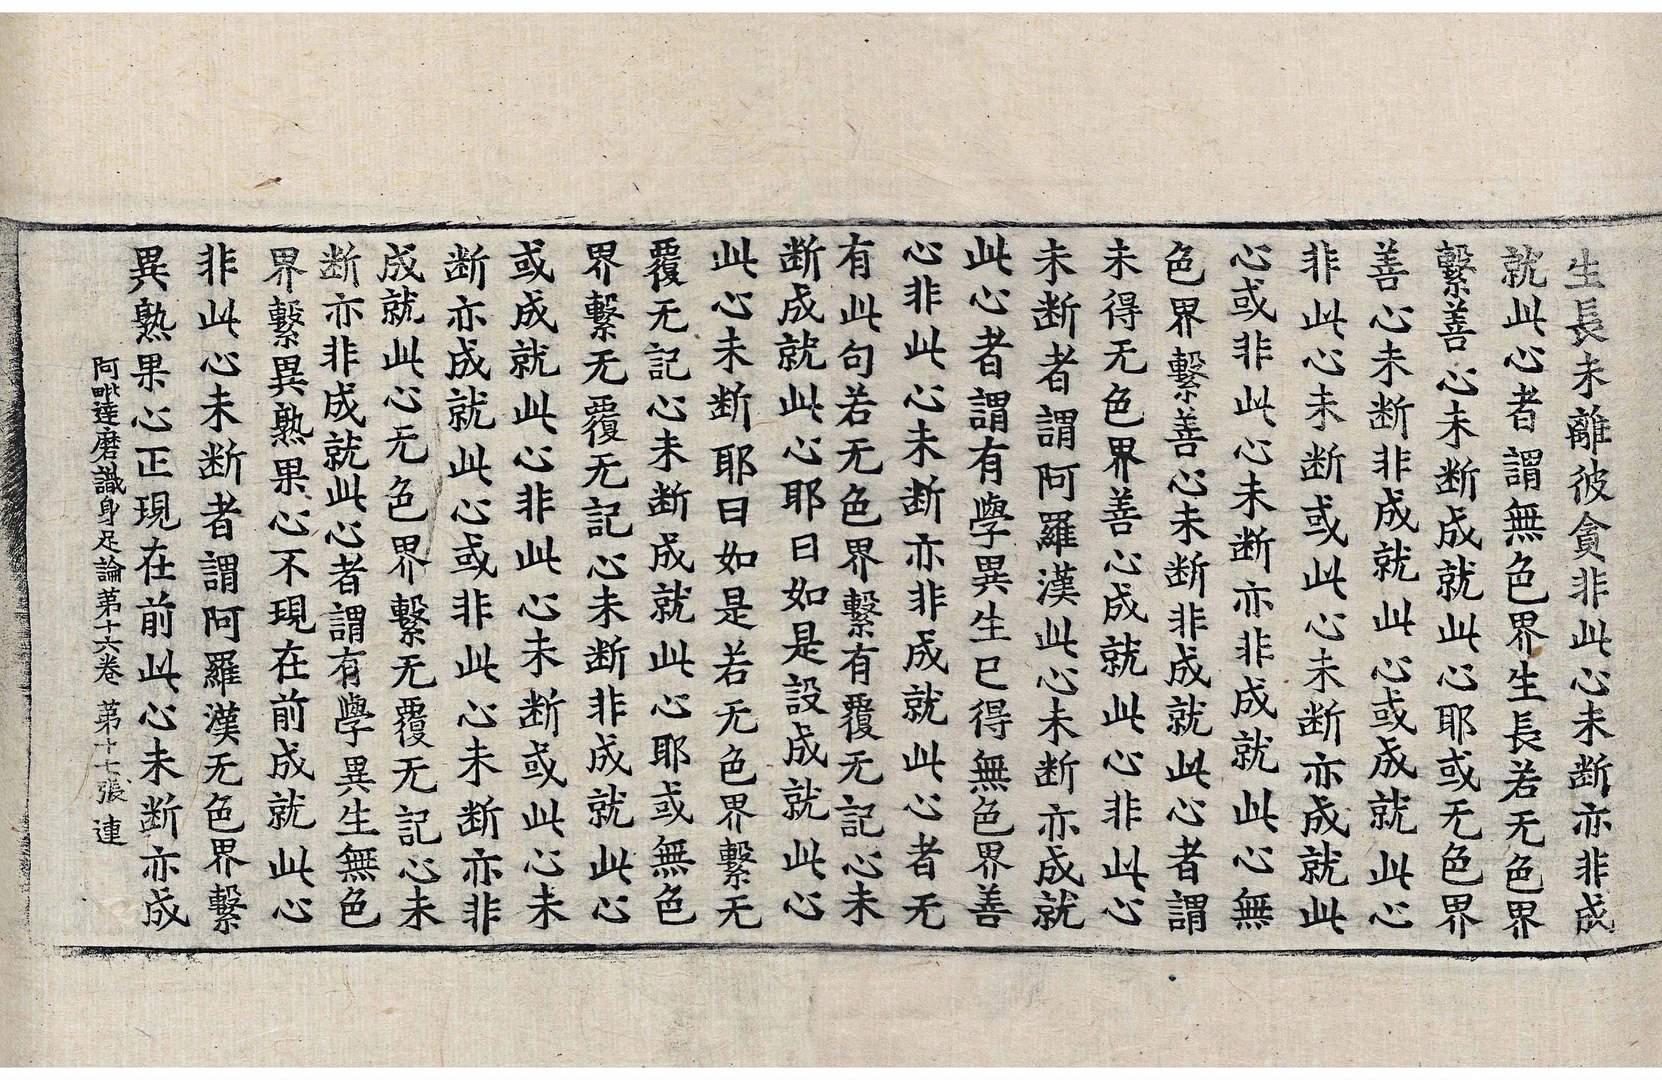 生長未離彼貪非此心未断亦非成
就此心者謂無色界生長若无色界
繫善心未断成就此心耶或无色界
善心未断非成就此心或成就此心
非此心未断或此心未断亦成就此
心或非此心未断亦非成就此心無
色界繫善心未断非成就此心者謂
未得无色界善心成就此心非此心
未断者謂阿羅漢此心未断亦成就
此心者謂有學異生已得無色界善
心非此心未断亦非成就此心者无
有此句若无色界繫有覆无記心未
断成就此心耶曰如是設成就此心
此心未断耶曰如是若无色界繫无
覆无記心未断成就此心耶或無色
界繫无覆无記心未断非成就此心
或成就此心非此心未断或此心未
断亦成就此心或非此心未断亦非
成就此心无色界繫无覆无記心未
断亦非成就此心者謂有學異生無色
界繫異熟果心不現在前成就此心
非此心未断者謂阿羅漢无色界繫
異熟果心正現在前此心未断亦成
阿毗達磨識身足論第十六卷 第十七張 連